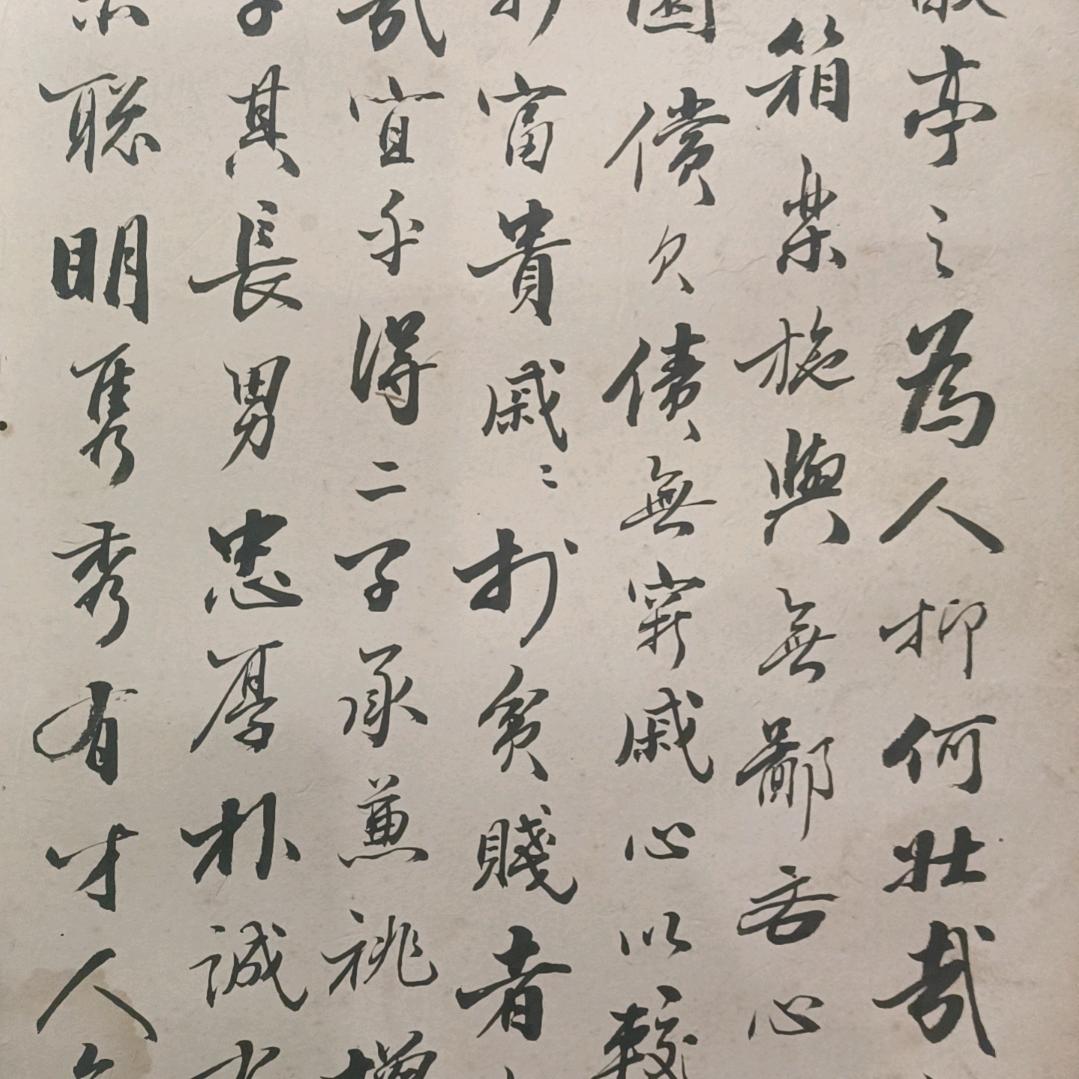 亭之為人抑何壯哉
箱樂施與無鄙吝心
園償欠債無窮戚心以較
於富貴戚〻於貧賤者
哉宜乎得二子承兼祧增
子其長男忠厚朴誠
聰明雋秀有才人